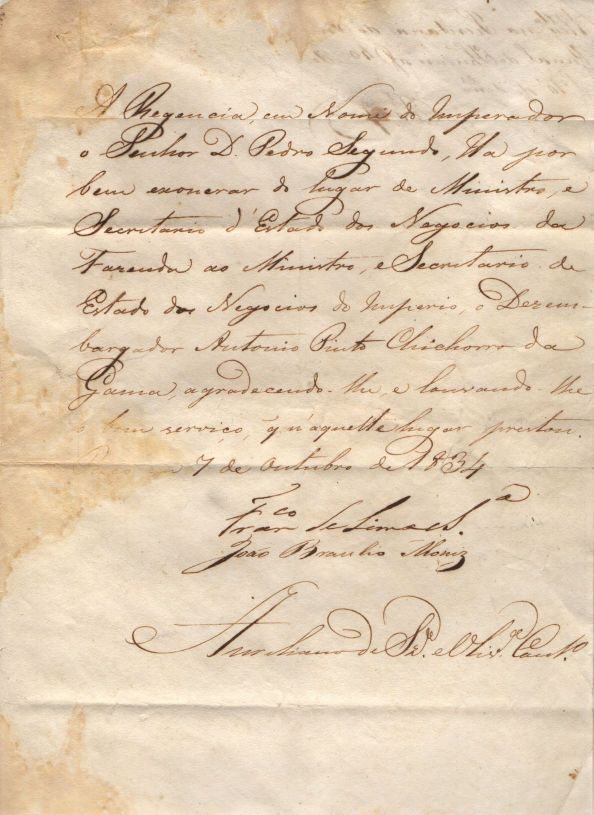 A Regencia, em Nome do Imperador
o Senhor D. Pedro Segundo, Ha por
bem exonerar do lugar de Ministro, e
Secretario d'Estado dos Negocios da
Fazenda ao Ministro, e Secretario de
Estado dos Negocios do Imperio, o Dezem-
bargador Antonio Pinto Chichorro da
Gama, agradecendo-lhe, e louvando-lhe,
o bom serviço, q n'aquelle lugar prestou.
7 de Outubro de 1834
Fran.co de Lima e S.a
João Braulio Moniz
Aureliano de Sz.a e Oliv.ra Cout.o